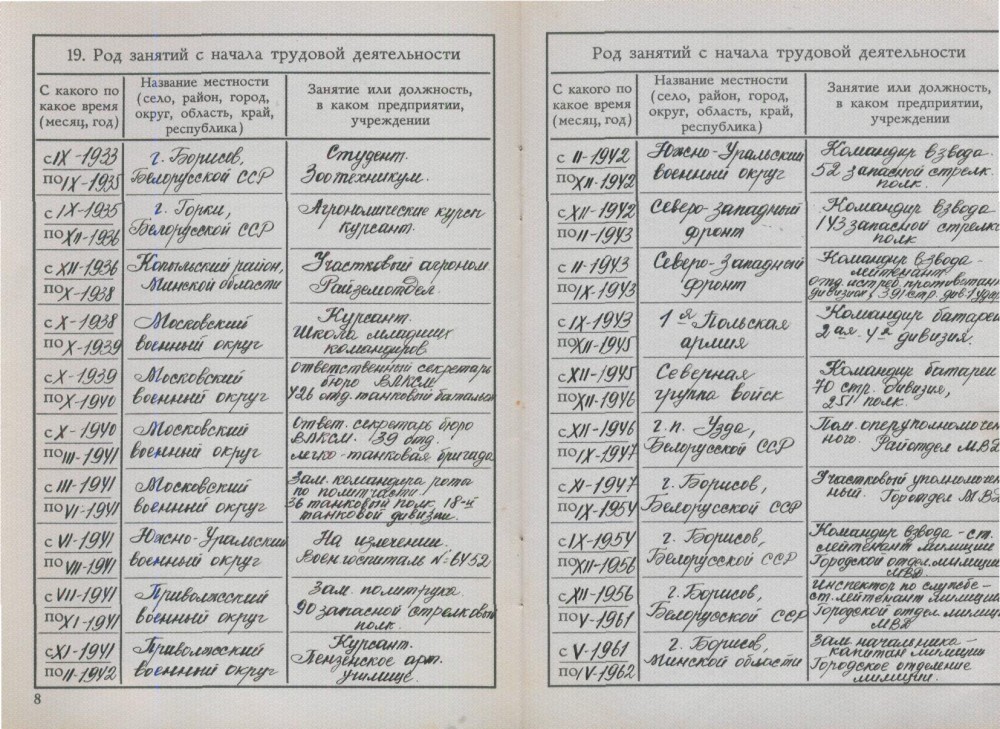 19. Род занятий с начала трудовой деятельности
С какого по
какое время
(месяц, год)
Название местности
(село, район, город,
округ, область, край,
республика)
Занятие или должность,
в каком предприятии,
учреждении
с IX-1933
по IX-1935
г. Борисов,
Белорусской ССР
Студент.
Зоотехникум.
с IX-1935
по XII-1936
г. Горки,
Белорусской ССР
Агрономические курсы
курсант.
с XII-1936
по X-1938
Копыльский район,
Минской области
Участковый агроном
Райземотдел.
с X-1938
по X-1939
Московский
военный округ
Курсант.
Школа младших
командиров
с X-1939
по X-1940
Московский
военный округ
Ответственный секретарь
бюро ВЛКСМ
426 отд. танковый батальон
с X-1940
по III-1941
Московский
военный округ
Ответ. секретарь бюро
ВЛКСМ. 39 отд.
легко-танковая бригада
с III-1941
по VI-1941
Московский
военный округ
Зам. командира рота
по политчасти
36 танковый полк, 18-й
танковой дивизии.
с VI-1941
по VII-1941
Южно-Уральский
военный округ
На излечении.
Военгоспиталь №
с VII-1941
по XI-1941
Приволжсский
военный округ
Зам. политрука.
90 запасной стрелковый
полк.
с XI-1941
по II-1942
Приволжсский
военный округ
Курсант.
Пензенское арт.
училище.
8
Род занятий с начала трудовой деятельности
С какого по
какое время
(месяц, год)
Название местности
(село, район, город,
округ, область, край,
республика)
Занятие или должность,
в каком предприятии,
учреждении
с II-1942
по XII-1942
Южно-Уральский
военный округ
Командир взвода.
52 запасной стрелк.
полк.
с XII-1942
по II-1943
Северо-западный
фронт
Командир взвода
143 запасной стрелк
полк
с II-1943
по IX-1943
Северо-западный
фронт
Командир взвода-
лейтенант
отд. истреб противотанк
дивизион, 391 стр. див. 1 уд
с IX-1943
по XII-1945
1ая Польская
армия
Командир батареи
2ая. 4я дивизия.
с XII-1945
по XII-1946
Северная
группа войск
Командир батареи
70 стр. дивизия,
251 полк.
с XII-1946
по IX-1947
г.п. Узда,
Белорусской ССР
Пом. оперуполномочен
ного. Райотдел МВД
с XI-1947
по IX-1954
г. Борисов,
Белорусской ССР
Участковый уполномочен
ный. Горотдел МВД
с IX-1954
по XII-1956
г. Борисов,
Белорусской ССР
Командир взвода-ст.
лейтенант милиции
Городской отдел милиции
МВД
с XII-1956
по V-1961
г. Борисов,
Белорусской ССР
Инспектор по службе-
ст. лейтенант милиции
Городской отдел милиц
МВД
с V-1961
по IV-1962
г. Борисов,
Минской области
Зам. начальника-
капитан милиции
Городское отделение
милиции.